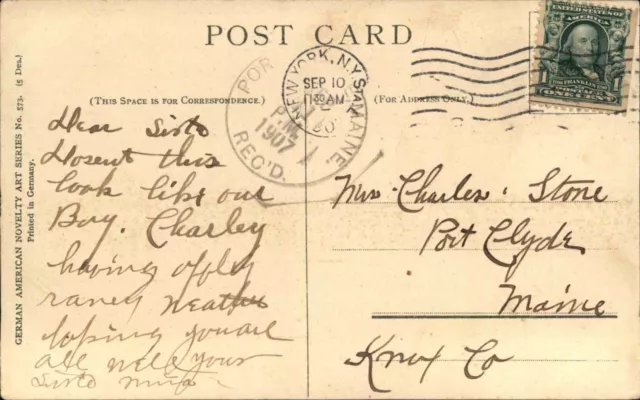 POST CARD
(THIS SPACE IS FOR CORRESPONDENCE.)
(FOR ADDRESS ONLY.)
GERMAN AMERICAN NOVELTY ART SERIES No. 573. (5 Des.)
Printed in Germany.
NEW YORK, N.Y. STA.
SEP 10
AM
POR
MAINE
PM
1907
REC'D.
UNITED STATES OF AMERICA
FRANKLIN
1 1
ONE CENT
Dear Sista
Dosent this
look like our
Boy. Charley
having offley
raney weather
hoping you are
all well your
Sista
Mrs. Charles. Stone
Port Clyde
Maine
Knox Co